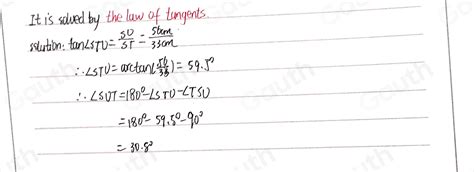 It is solved by the law of tangents.
solution: tan∠STU = SU/ST = 56cm/33cm
∴ ∠STU = arctan(56/33) = 59.5°
∴ ∠SUT = 180° - ∠STU - ∠TSU
= 180° - 59.5° - 90°
= 30.5°